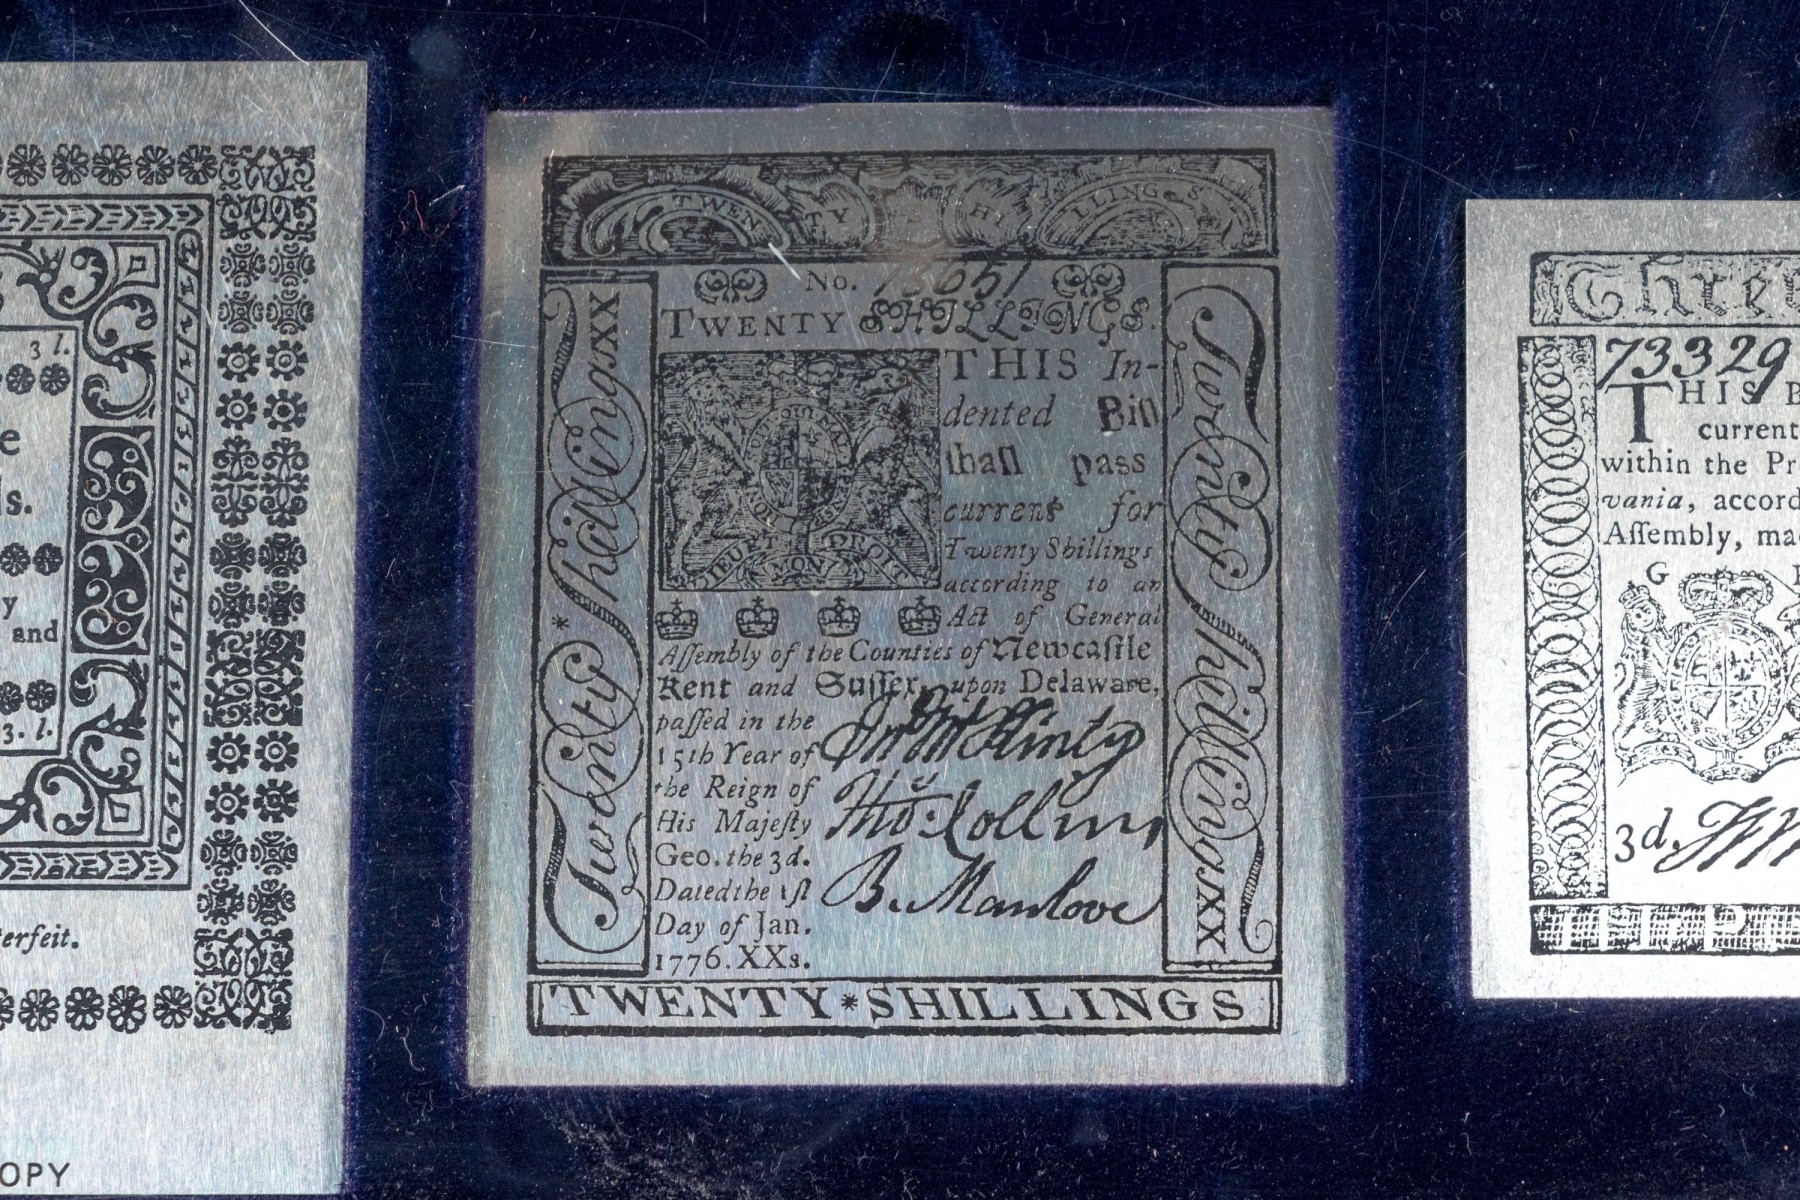 3 l.
e
s.
y
and
3. l.
erfeit.
OPY
TWENTY SHILLINGS
No. 13651
TWENTY SHILLINGS.
THIS In-
dented Bill
ſhall pass
current for
Twenty Shillings
according to an
Act of General
Aſſembly of the Counties of Newcaſtle
Kent and Suſſex, upon Delaware,
paſſed in the
15th Year of
the Reign of
His Majeſty
Geo. the 3d.
Dated the 1ſt
Day of Jan.
1776. XXs.
Jn.o McKinly
Tho.s Collins
B. Manlove
HONI SOIT MAL Y PENSE
DIEU ET MON DROIT
Twenty * ShillingsXX
Twenty ShillingsXX
TWENTY*SHILLINGS
Three
73329
THIS B
current
within the Pr
vania, accord
Aſſembly, ma
G
3d.